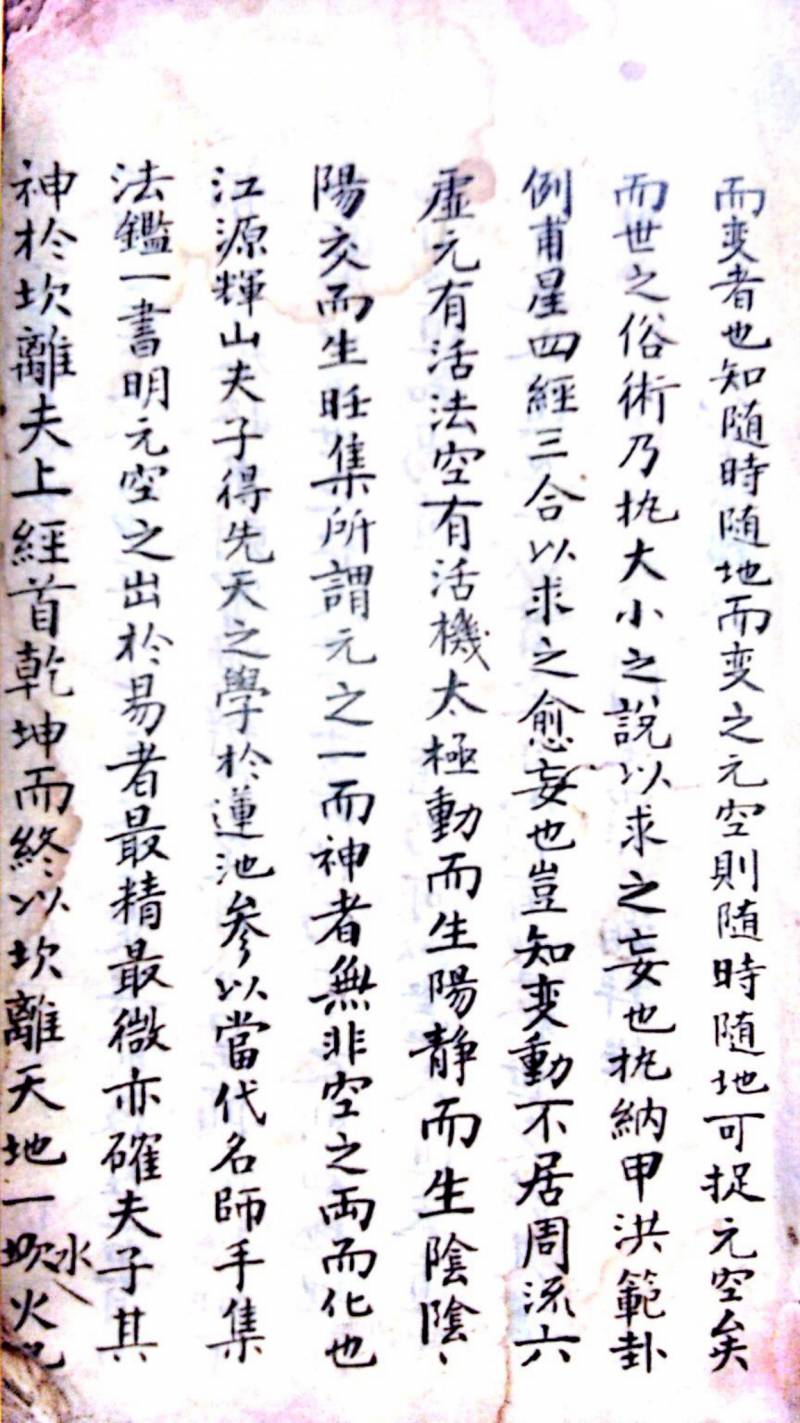 而变者也知随時随地而变之元空則随時随地可捉元空矣
而世之俗術乃执大小之說以求之妄也执納甲洪範卦
例甫星四經三合以求之愈妄也豈知变動不居周流六
虚元有活法空有活機太極動而生陽静而生陰陰、
陽交而生 集所謂元之一而神者無非空之両而化也
江源輝山夫子得先天之學於蓮池参以當代名師手集
法鑑一書明元空之出於易者最精最微亦確夫子其
神於坎離夫上經首乾坤而終以坎離天地一坎水火